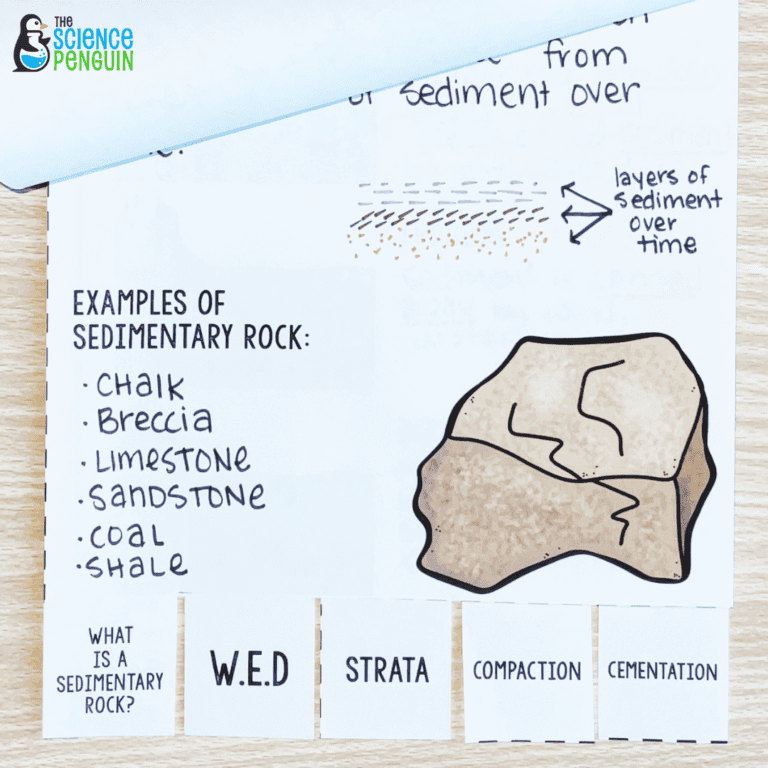 THE
SCIENCE
PENGUIN
from
of sediment over
layers of
sediment
over
time
EXAMPLES OF
SEDIMENTARY ROCK:
· CHalk
· Breccia
· LIMESTONE
· SaNDSTONE
· COaL
· SHaLe
WHAT
IS A
SEDIMENTARY
ROCK?
W.E.D
STRATA
COMPACTION
CEMENTATION